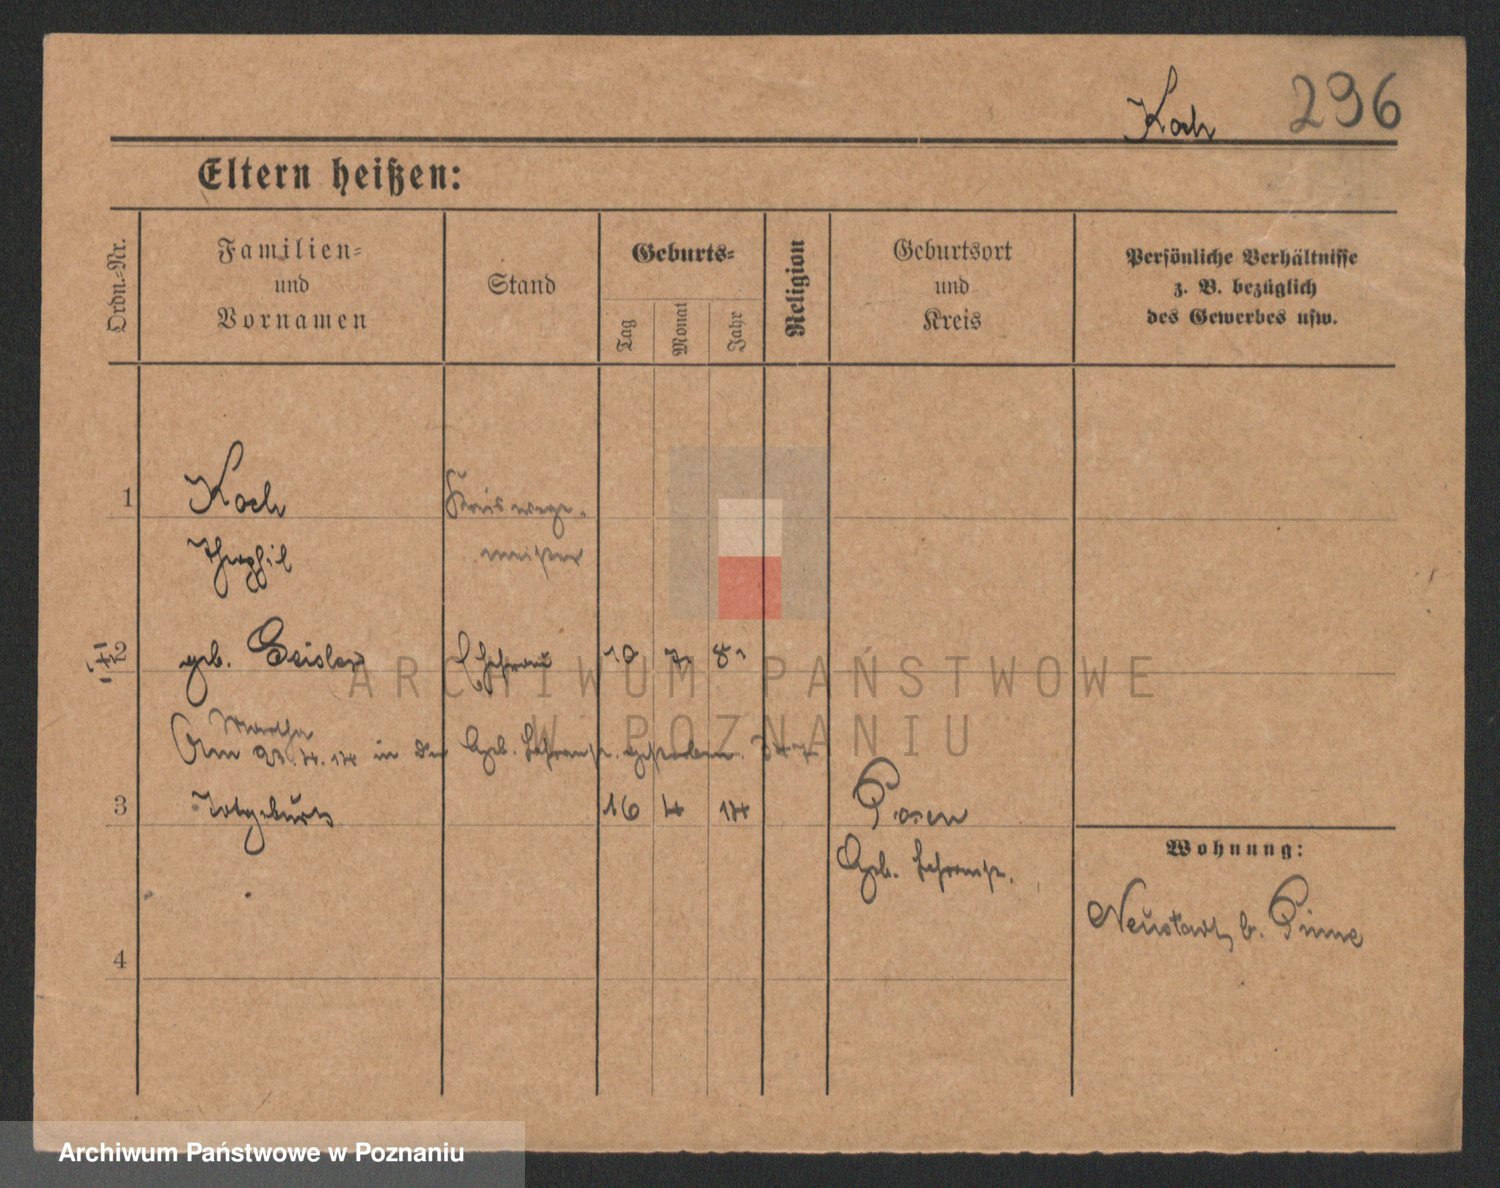 Koch 296
Eltern heißen:
Ordn.-Nr.
Familien-
und
Vornamen
Stand
Geburts-
Tag
Monat
Jahr
Religion
Geburtsort
und
Kreis
Persönliche Verhältnisse
z. B. bezüglich
des Gewerbes usw.
1 Koch Kreiswege-
Theophil meister
2 geb. Geisler Ehefrau 10 7. 81
Martha
Am 23.4.14 in der Geb. gestorben.
3 Totgeburt 16 4 14 Posen
Geb.
Wohnung:
Neustadt b. Pinne
4
ARCHIWUM PAŃSTWOWE
W POZNANIU
Archiwum Państwowe w Poznaniu